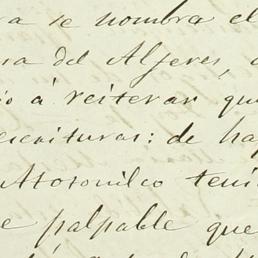 a se nombra el
ra del Alferes,
ó á reiterar que
escrituras: de ha
Atotonilco teni
e palpable que